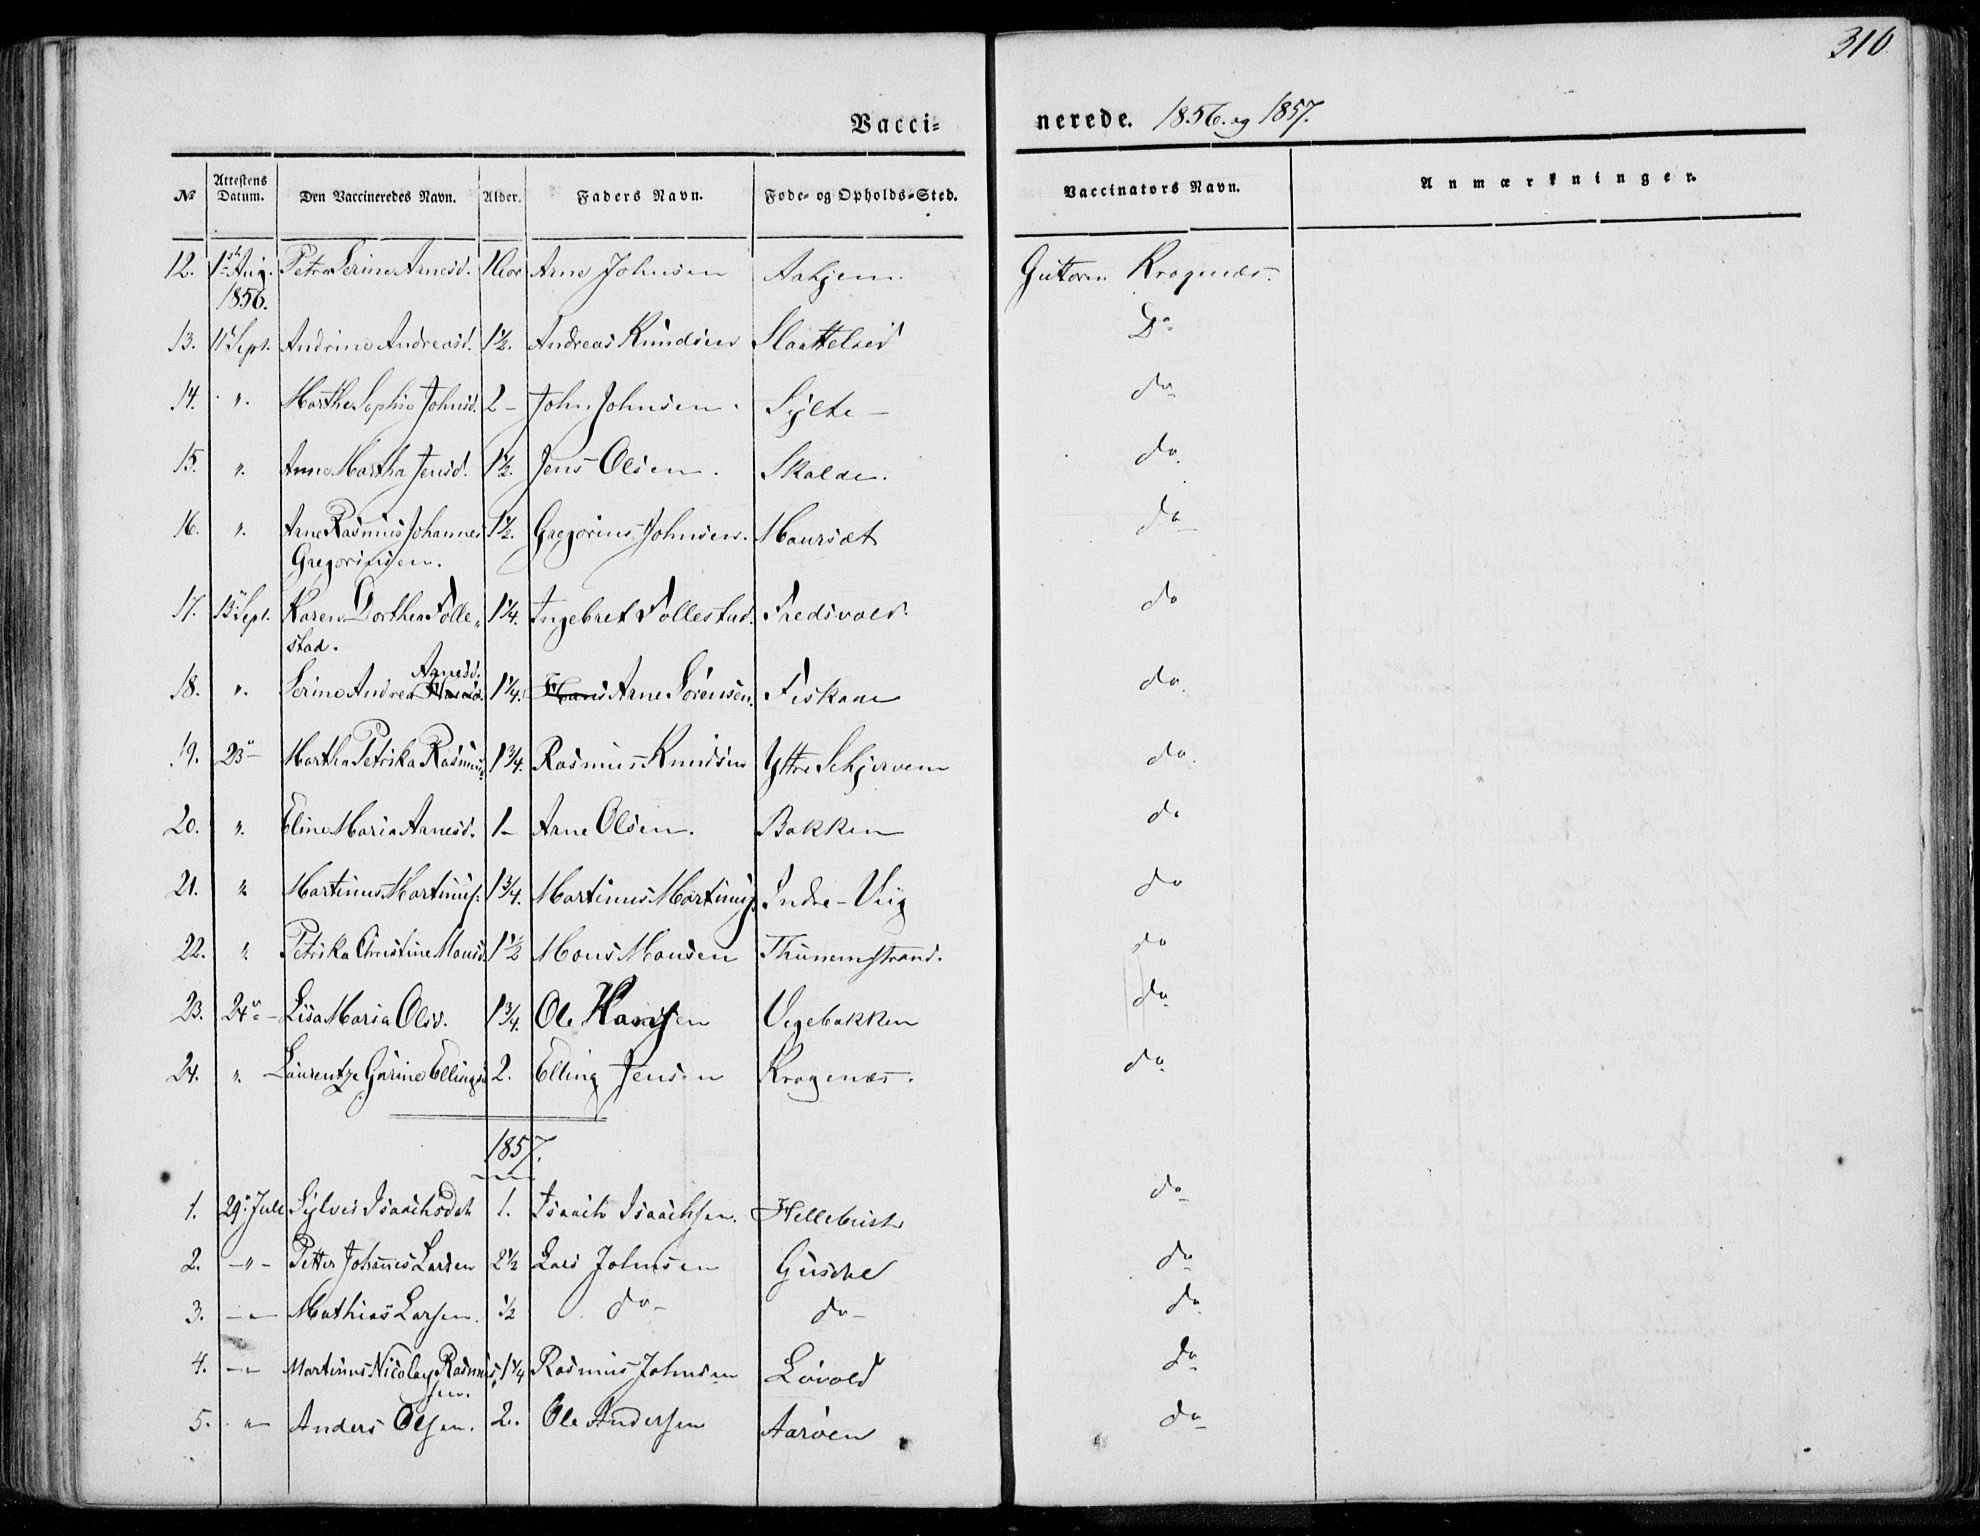 316
Vacci- nerede. 1856. og 1857.
No Attestens Datum. Den Vaccineredes Navn. Alder. Faders Navn. Føde- og Opholds-Sted. Vaccinators Navn. Anmærkninger.
12. 1ste Aug. 1856. Petra Serine Arnesd. Arne Johnsen Aahjem. Krogenæs.
13. 11 Sept. Andrine Andreasd. 1½. Andreas Knudsen Slaattelid Do
14. " Marthe Sophie Johnsd. 2 – John Johnsen. Sylte – do
15. " Anne Martha Jensd. 1½. Jens Olsen. Skalde. do
16. " Arne Rasmus Johannes 1½. Gregorius Johnsen. Maursæt do
Gregoriusen.
17. 15 Sept. Karen Dorthea Folle- 1¼. Ingebret Follestad. Fredsvold. do
stad.
Arnesd.
18. " Serine Andrea 1¼. Hans Arne Sørensen. Fiskaae do
19. 23 – Martha Petrika Rasmusd 1¾. Rasmus Knudsen Yttre Schjervem do
20. " Eline Maria Arnesd. 1 – Arne Olsen. Bakken do
21. " Martinus Martinus. 1¾. Martinus Martinus. Indre – Viig do
22. " Petrika Christine Monsd. 1½ Mons Monsen Thunemstrand. do
23. 24 – Lisa Maria Olsd. 1¾. Ole Hansen Vegebakken do
24. " Laurentze Gurine Ellingsd 2. Elling Jensen Krogenæs. do
1857.
1. 29. Juli Sylvei Isaachsdat 1. Isaach Isaachsen. Hellebust do
2. – " – Petter Johannes Larsen 2½ Lars Johnsen Gusdal do
3. – " – Mathias Larsen. ½ do – do – do
4. – " Martinus Nicolay Rasmus- 1¼ Rasmus Johnsen Løvold Do
sen.
5. " Anders Olsen. 2. Ole Andersen Aarøen do